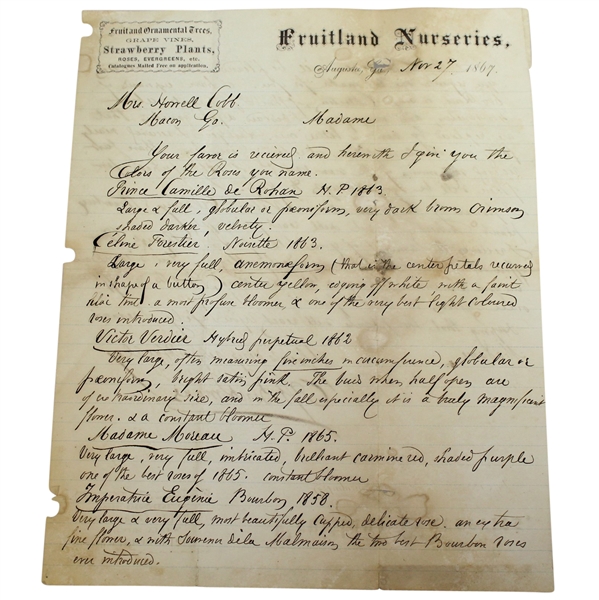 Fruit and Ornamental Trees,
GRAPE VINES,
Strawberry Plants,
ROSES, EVERGREENS, etc.
Catalogues Mailed Free on application.
Fruitland Nurseries,
Augusta, Ga. Nov 27 1867.
Mrs Howell Cobb
Macon Ga.
Madame
Your favor is recieved and herewith I give you the
Colors of the Roses you name.
Prince Camille de Rohan H.P 1863
Large & full, globular or pæoniform, very dark brown crimson
shaded darker, velvety.
Céline Forestier, Noisette 1863.
Large, very full, anemonæform (that is the center petals recurved
in shape of a button) center yellow, edging off white with a faint
lilac tint. a most profuse bloomer, & one of the very best light coloured
roses introduced.
Victor Verdier Hybrid perpetual 1862
Very large, often measuring five inches in circumference, globular or
pæoniform, bright satin pink. The buds when half open are
of extraordinary size, and in the fall especially it is a truly magnificent
flower. & a constant bloomer
Madame Moreau H.P. 1865.
Very large, very full, imbricated, brilliant carmine red, shaded purple
one of the best roses of 1865. constant bloomer
Imperatrice Eugenie Bourbon 1858.
Very large & very full, most beautifully cupped, delicate rose. an extra
fine flower, & with Souvenir de la Malmaison the two best Bourbon roses
ever introduced.